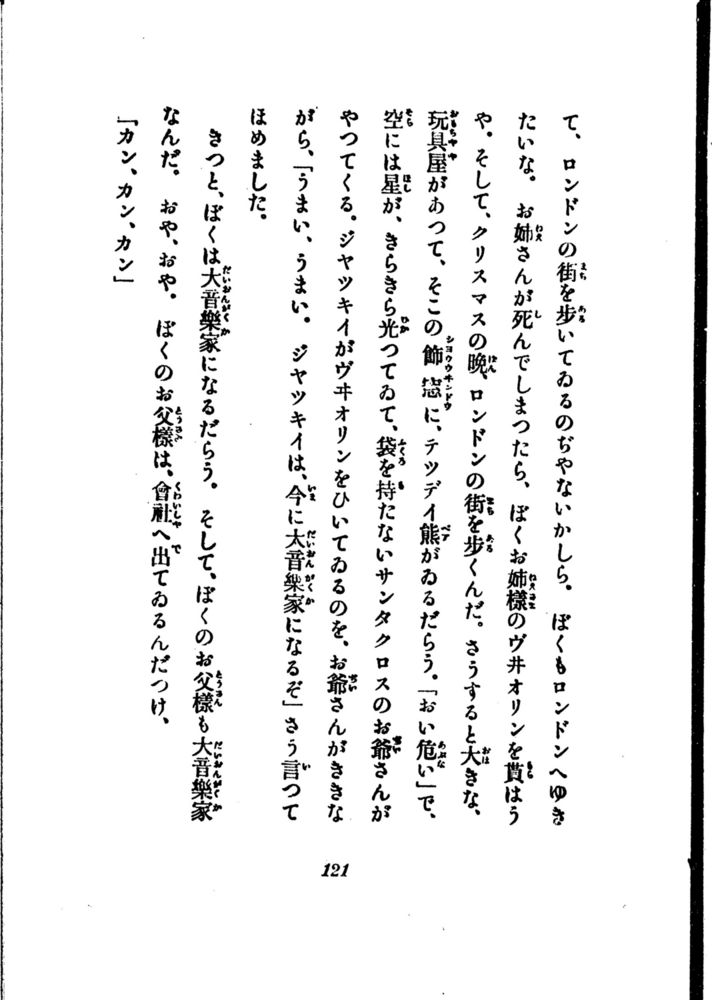 て、ロンドンの街を歩いてゐるのぢやないかしら。ぼくもロンドンへゆき
たいな。お姉さんが死んでしまつたら、ぼくお姉樣のヴ井オリンを貰はう
や。そして、クリスマスの晩、ロンドンの街を歩くんだ。さうすると大きな、
玩具屋があつて、そこの飾窓に、テツデイ熊がゐるだらう。「おい危い」で、
空には星が、きらきら光つてゐて、袋を持たないサンタクロスのお爺さんが
やつてくる。ジヤツキイがヴヰオリンをひいてゐるのを、お爺さんがききな
がら、「うまい、うまい。ジヤツキイは、今に大音樂家になるぞ」さう言つて
ほめました。
きつと、ぼくは大音樂家になるだらう。そして、ぼくのお父樣も大音樂家
なんだ。おや、おや。ぼくのお父樣は、會社へ出てゐるんだつけ、
「カン、カン、カン」
121